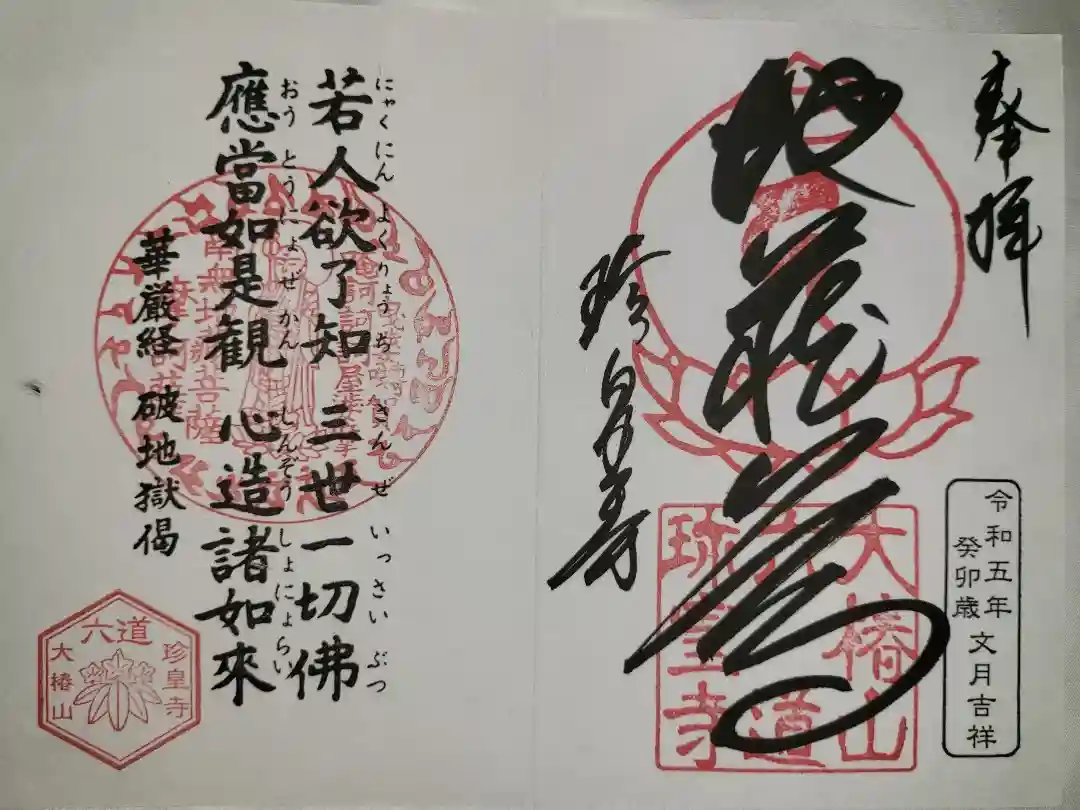 奉拝
地蔵尊
珍皇寺
大椿山
六道
珎皇寺
令和五年
癸卯歳
文月吉祥
若人欲了知 三世一切佛
にゃくにん よくりょうち さんぜ いっさい ぶつ
應當如是観 心造諸如來
おうとうにょぜかん しんぞうしょにょらい
華厳経 破地獄偈
南無地蔵菩薩
六道
珍皇寺
大椿山